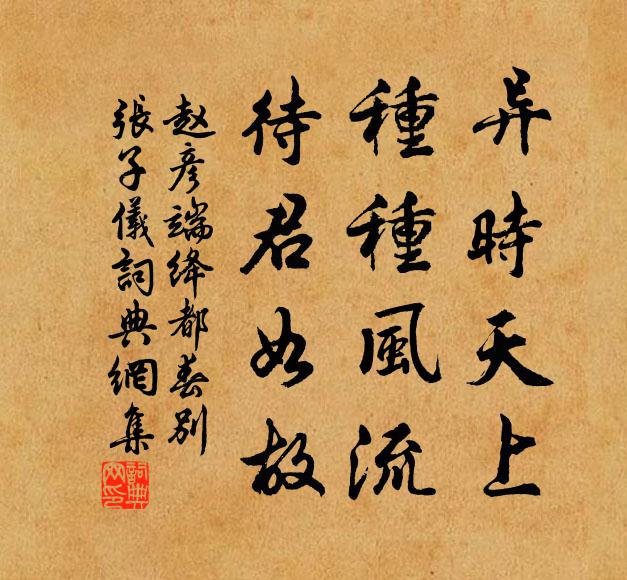 异時天上
種種風流
待君如故
赵彦端绛都春别
張子儀詞典網集
詞典
网印